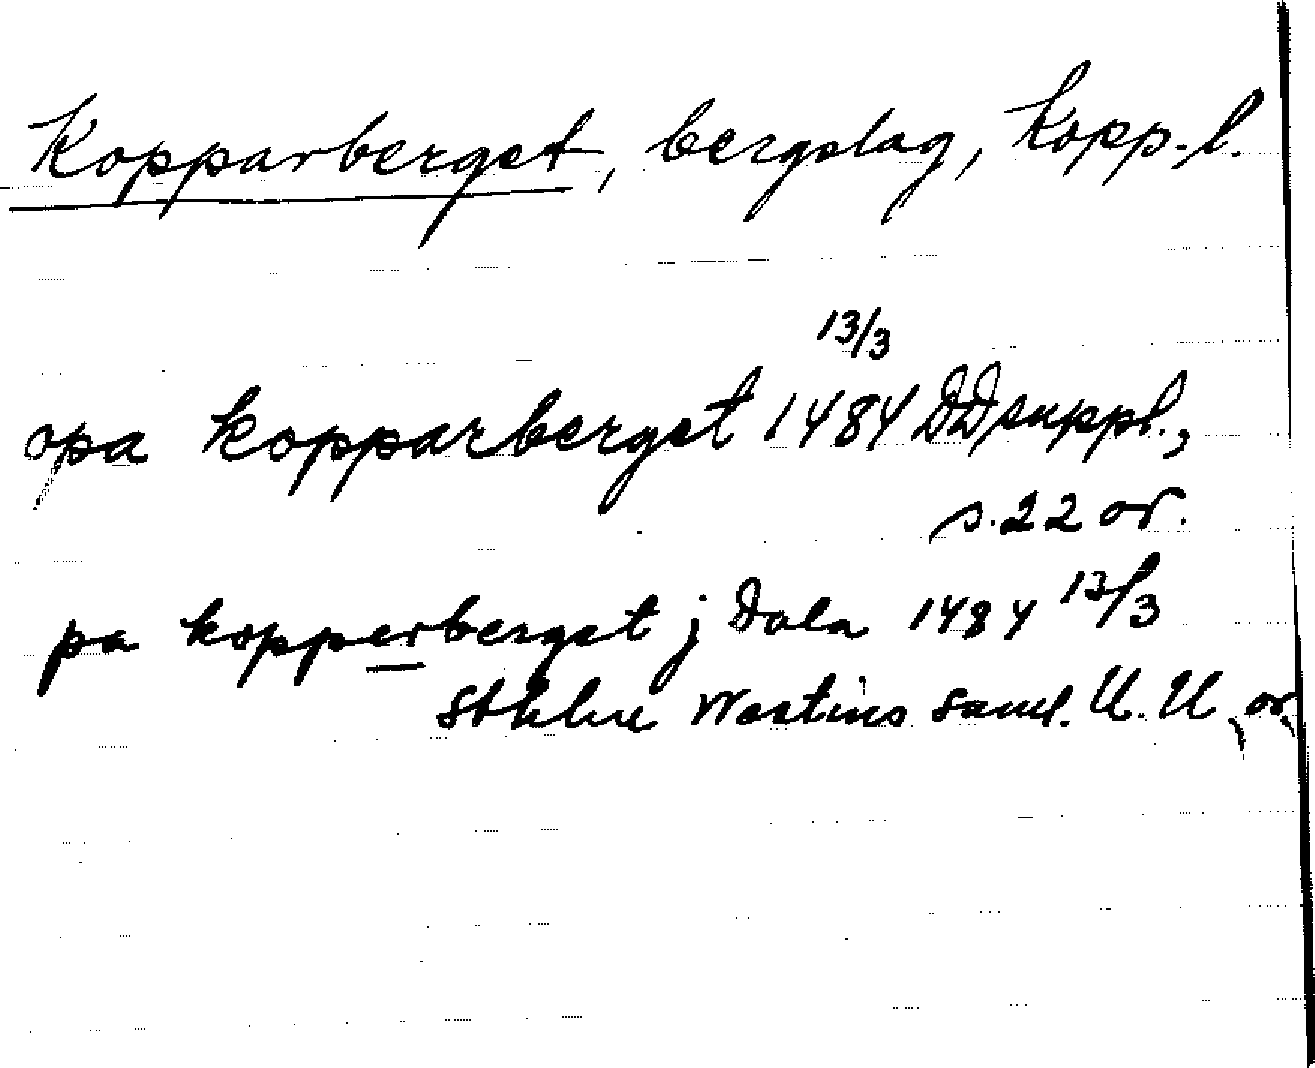 Kopparberget, bergslag, Kopp. l.
13/3
opa kopparberget 1484 DD suppl.,
s. 22 or.
pa kopperberget j Dala 1484 13/3
Westins saml. U. U, or.